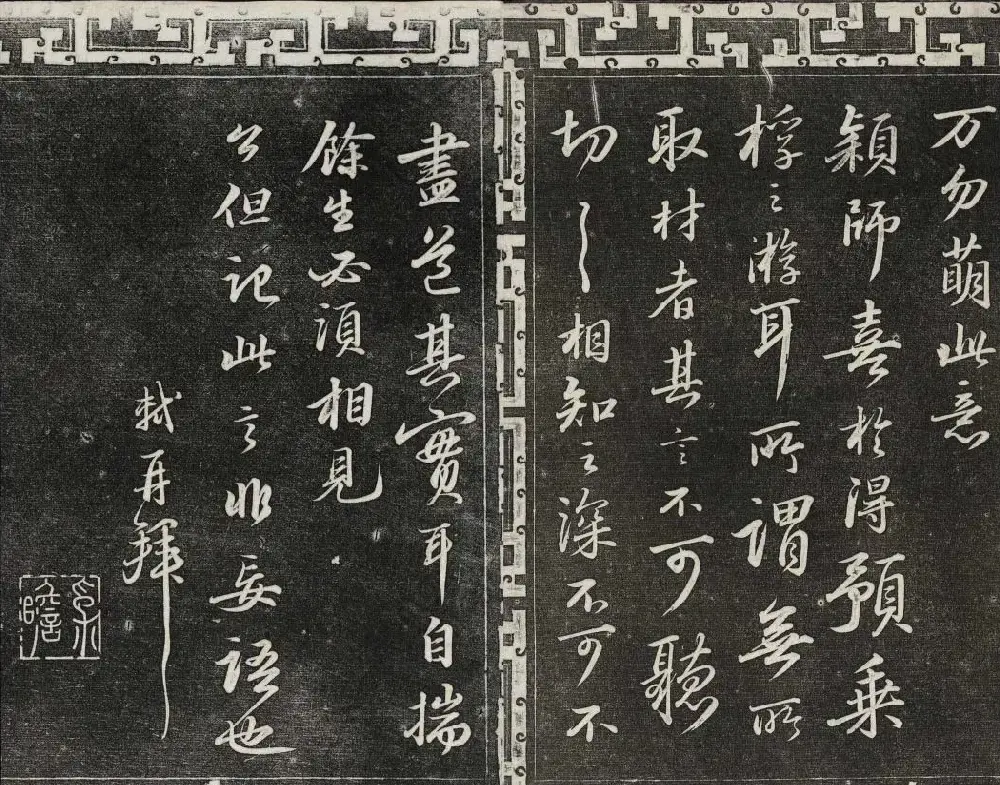 万勿萌此意
穎師喜於得預乗
桴之游耳所謂無所
取材者其言不可聽
切〻相知之深不可不
盡道其實耳自揣
餘生必須相見
公但記此言非妄語也
軾再拜